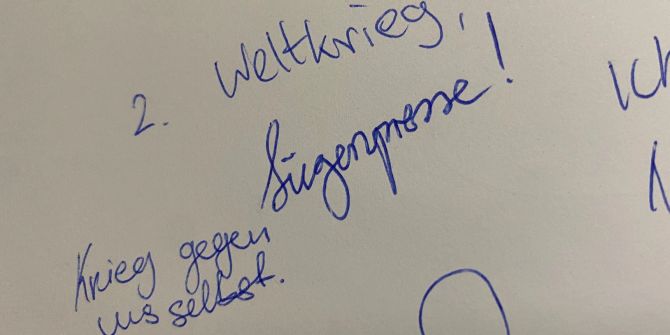 2. Weltkrieg,
Lügenpresse!
Krieg gegen
uns selbst.
Ich